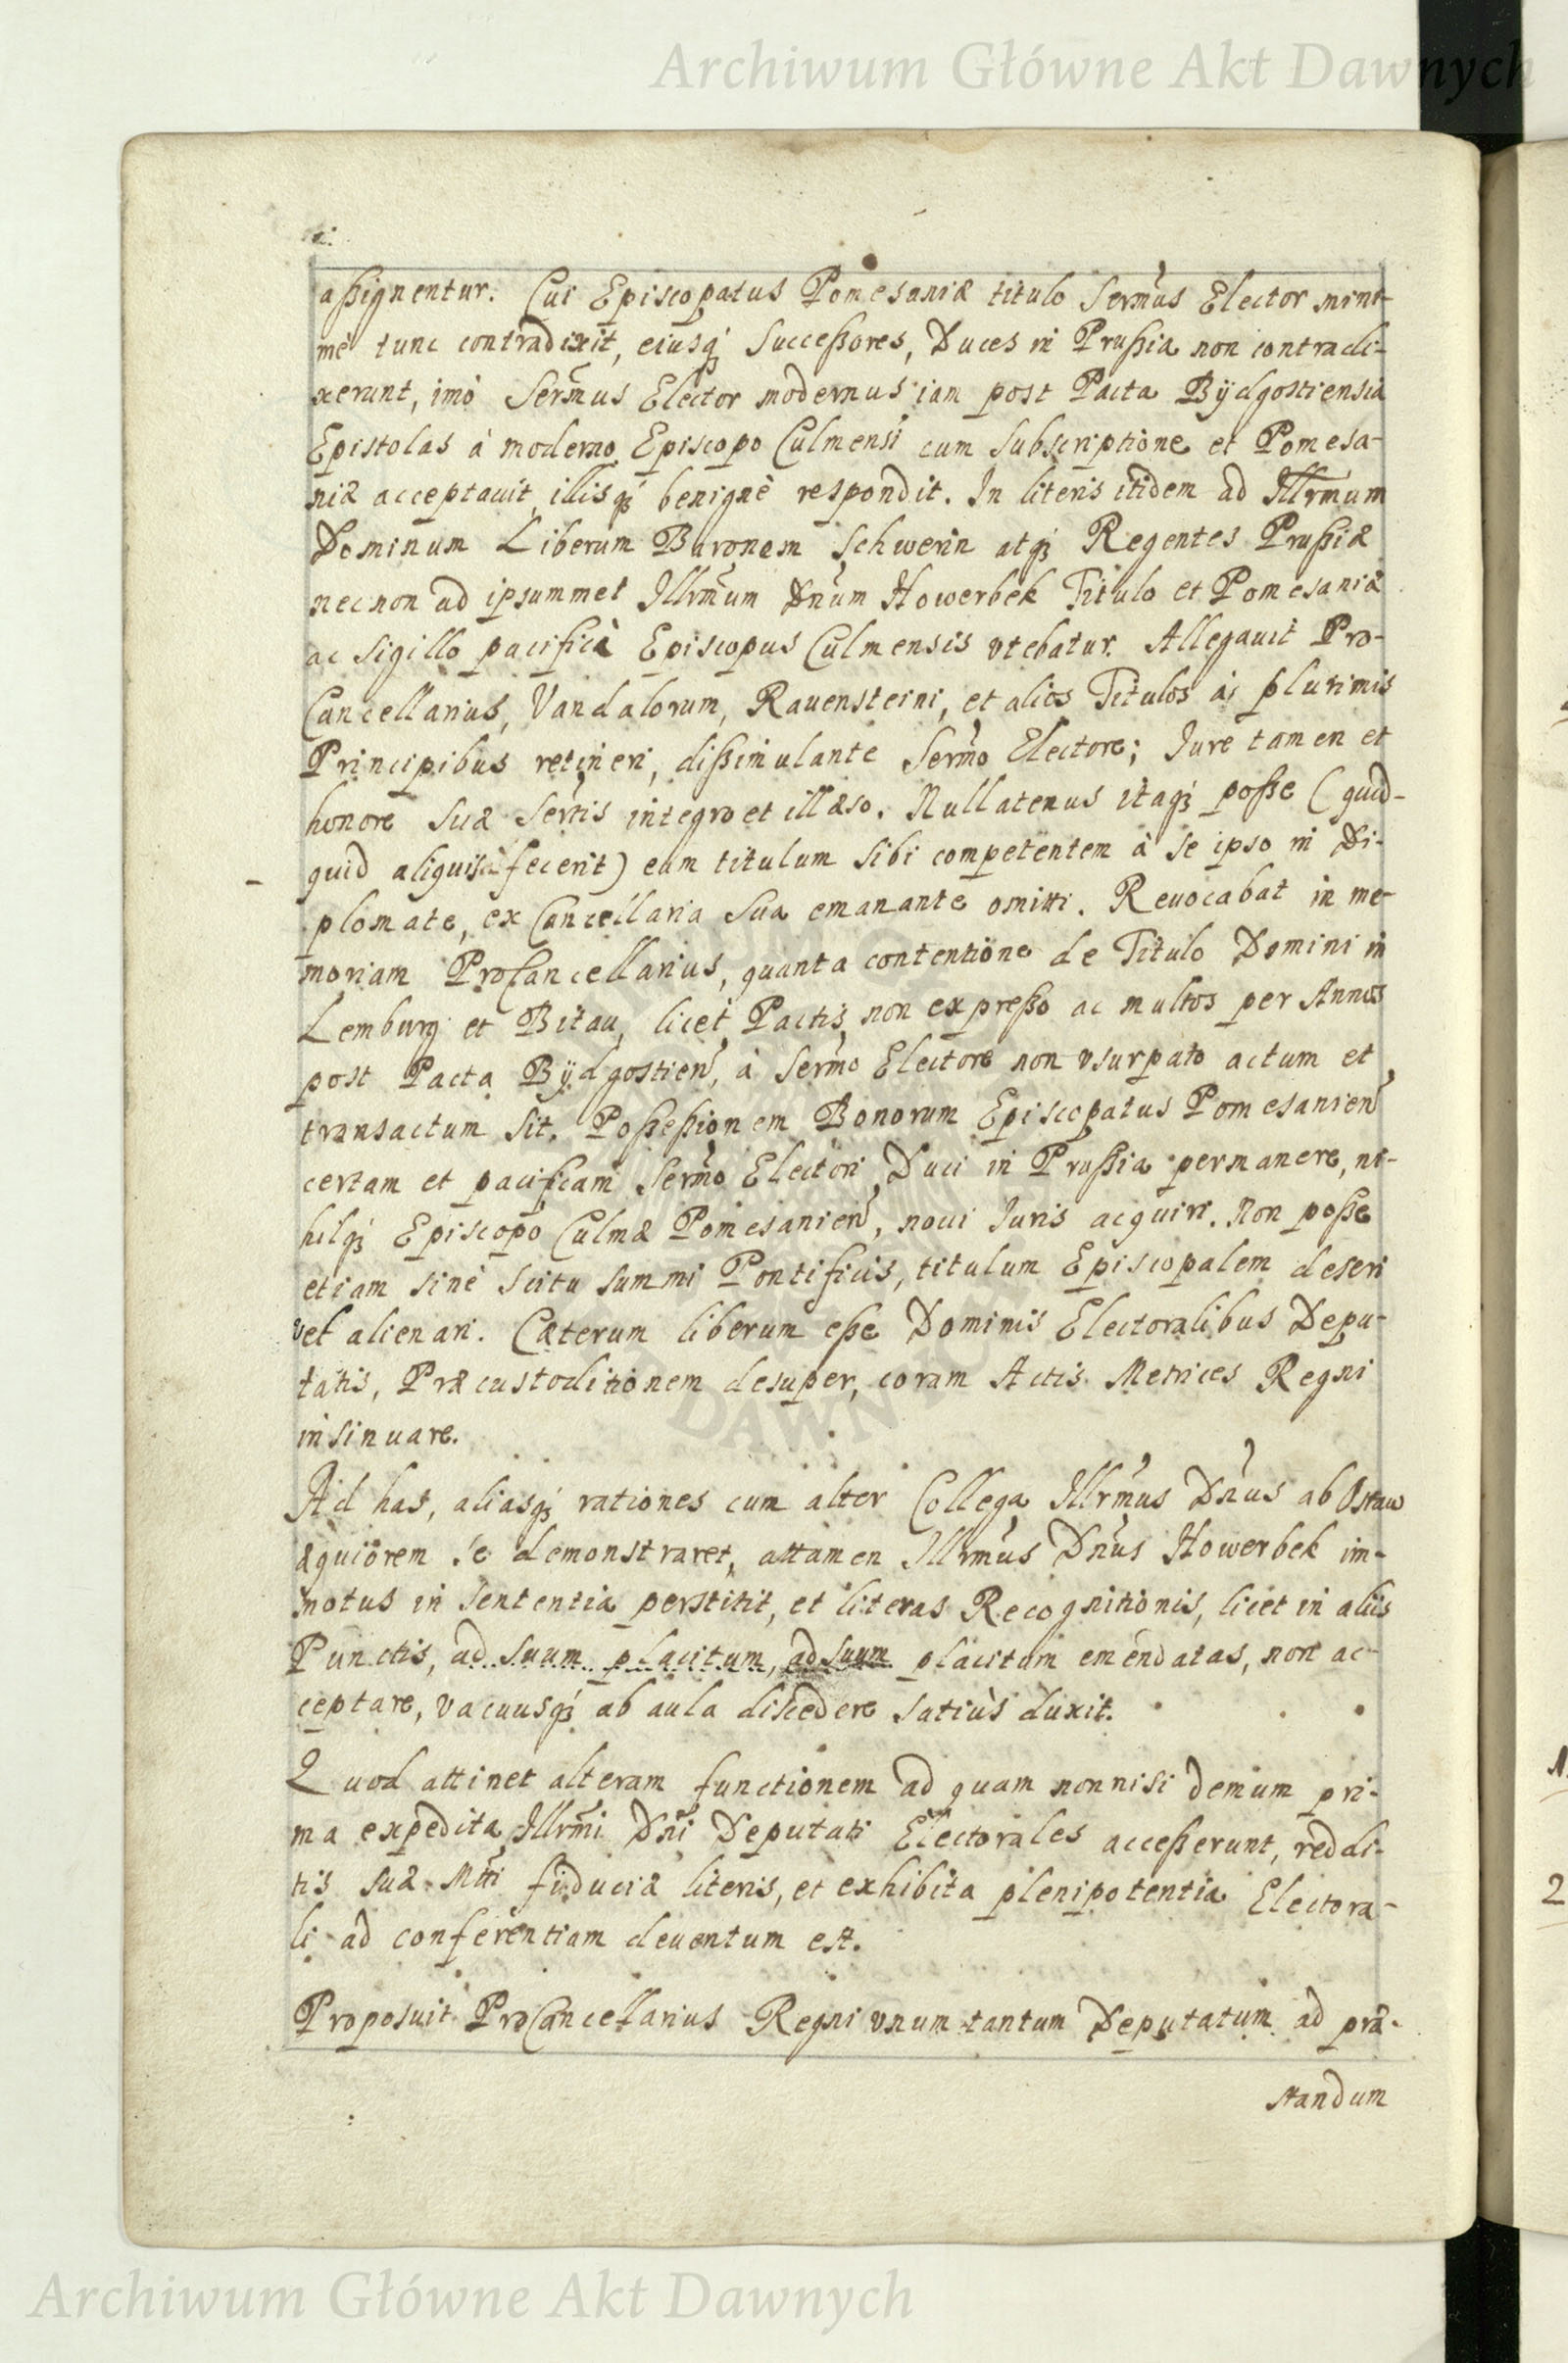 Archiwum Główne Akt Dawnych
aßignentur. Cui Episcopatus Pomesaniæ titulo Sermus Elector mini-
mè tunc contradixit, eiusq; Succeßores, Duces in Prußia non contradi-
xerunt, imò Sermus Elector modernus iam post Pacta Bÿdgostiensia
Epistolas à moderno Episcopo Culmensi cum Subscriptione et Pomesa-
niæ acceptauit, illisq; benignè respondit. In literis itidem ad Illrmum
Dominum Liberum Baronem Schwerin atq; Regentes Prußiæ
necnon ad ipsummet Illrmum Dnum Howerbek Titulo et Pomesaniæ
ac Sigillo pacificè Episcopus Culmensis vtebatur. Allegauit Pro-
Cancellarius, Vandalorum, Rauensteini, et alios Titulos à plurimis
Principibus retineri, dißimulante Sermo Electore; Iure tamen et
honore Suæ Sertis integro et illæso. Nullatenus itaq; poße (quid-
quid aliquis fecerit) eum titulum Sibi competentem à Se ipso in Di-
plomate, ex Cancellaria Sua emanante omitti. Reuocabat in me-
moriam ProCancellarius, quanta contentione de Titulo Domini in
Lemburg et Bitau, licet Pactis non expreßo ac multos per Annos
post Pacta Bÿdgostien, à Sermo Electore non vsurpato actum et
transactum Sit. Poßeßionem Bonorum Episcopatus Pomesanien
certam et pacificam Sermo Electori Duci in Prußia permanere, ni-
hilq; Episcopo Culmæ Pomesanien, noui Iuris acquiri. Non poße
etiam sinè Scitu Summi Pontificis, titulum Episcopalem deseri
vel alienari. Cæterum liberum eße Dominis Electoralibus Depu-
tatis, Præcustoditionem desuper, coram Actis Metrices Regni
insinuare.
Ad has, aliasq; rationes cum alter Collega Illrmus Dnus ab Ostau
æquiorem Se demonstraret, attamen Illrmus Dnus Howerbek im-
motus in Sententia perstitit, et literas Recognitionis, licet in aliis
Punctis, ad suum placitum, ad suum placitum emendatas, non ac-
ceptare, vacuusq; ab aula discedere Satiùs duxit.
Quod attinet alteram functionem ad quam nonnisi demum pri-
ma expedita Illrmi Dni Deputati Electorales acceßerunt, reddi-
tis Suæ Mtti fiduciæ literis, et exhibita plenipotentia Electora-
li ad conferentiam deuentum est.
Proposuit ProCancellarius Regni vnum tantum Deputatum ad præ-
standum
Archiwum Główne Akt Dawnych